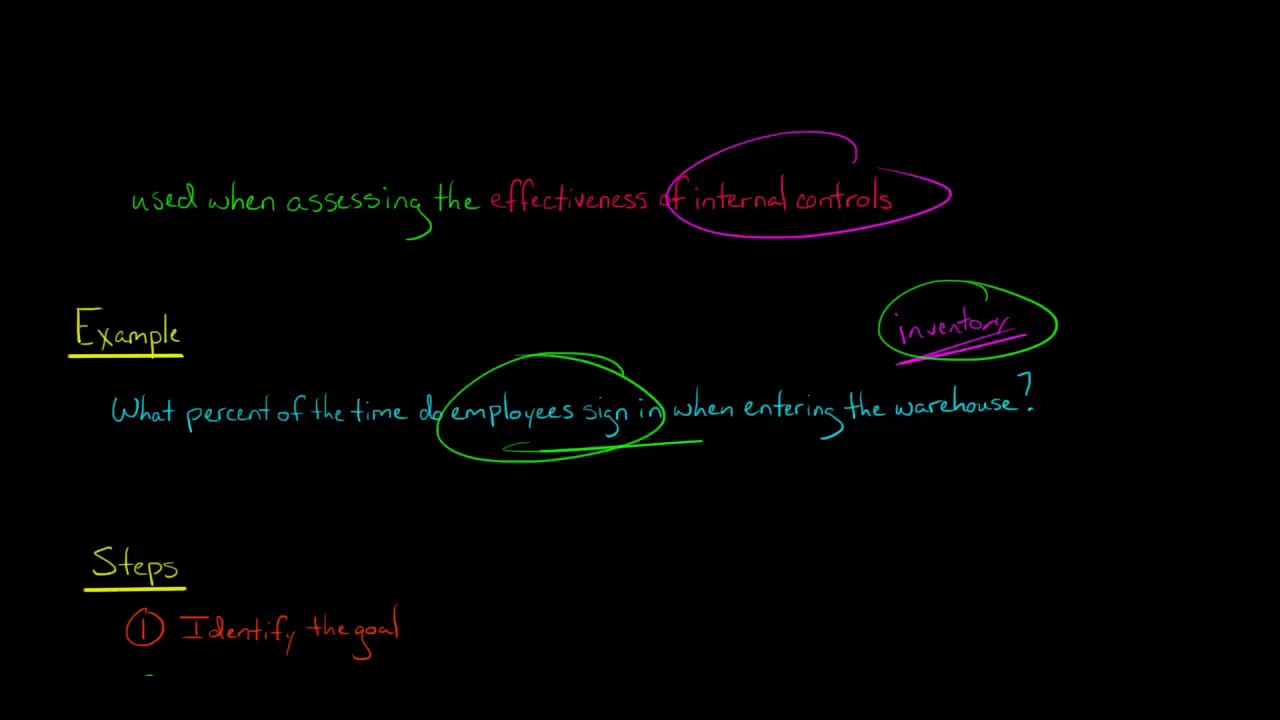 used when assessing the effectiveness of internal controls
Example
inventory
What percent of the time do employees sign in when entering the warehouse?
Steps
① Identify the goal